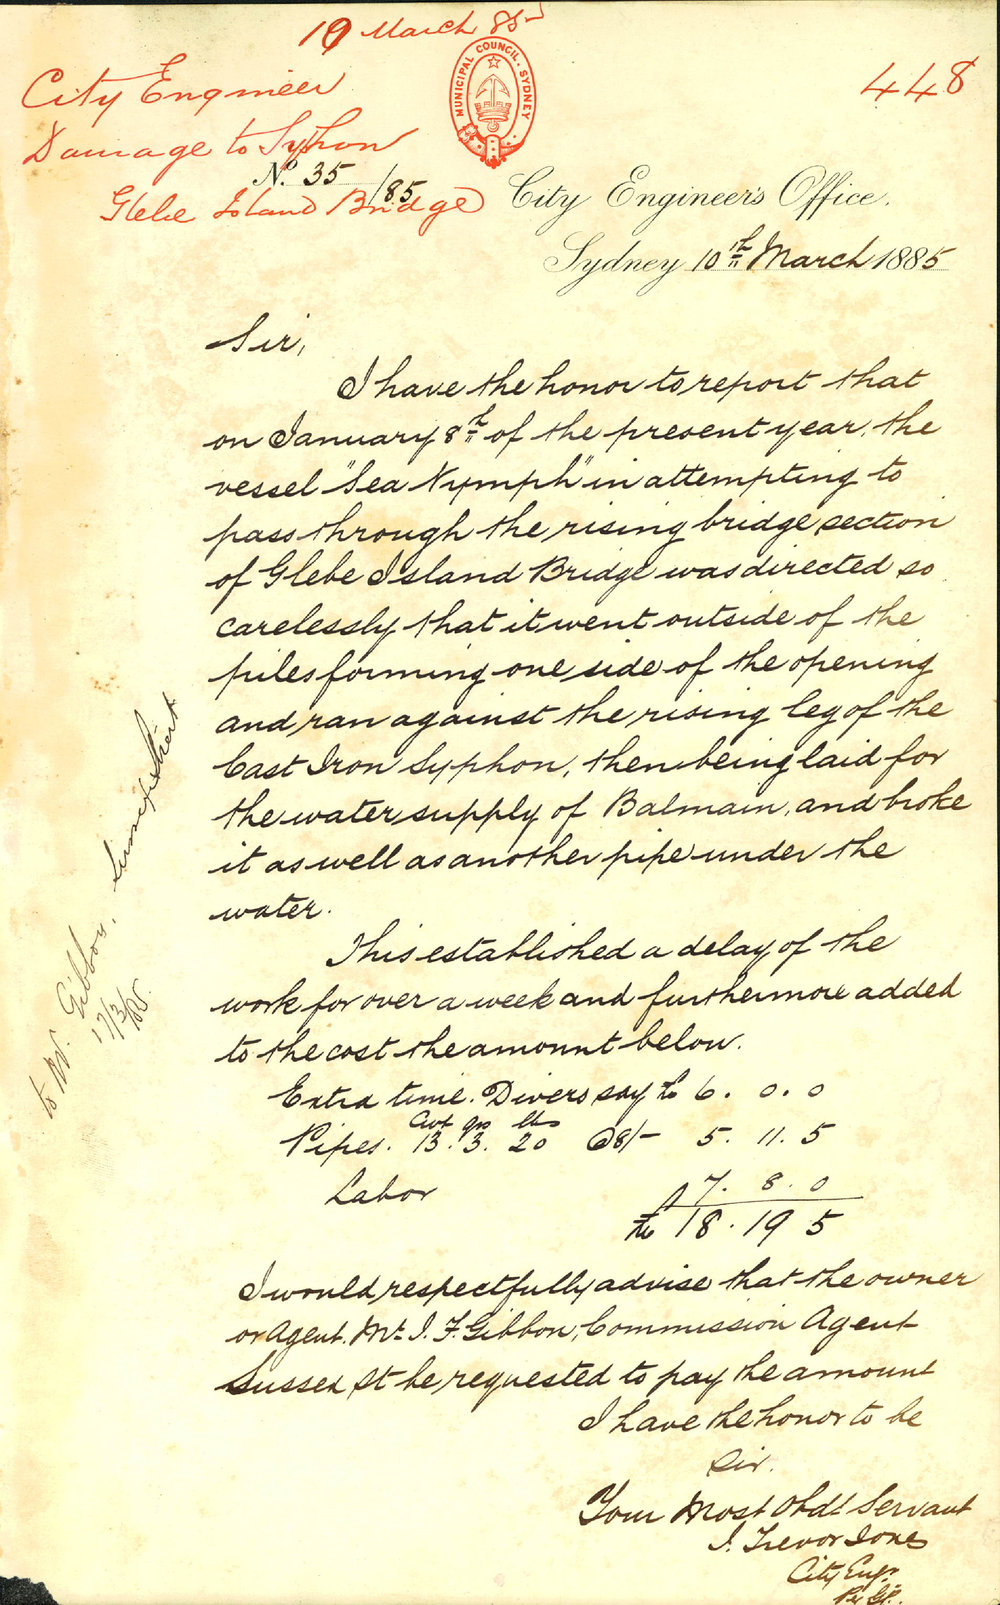 19 March 85
448
City Engineer
Damage to Syphon
Glebe Island Bridge
MUNICIPAL COUNCIL. SYDNEY
No. 35/85
City Engineer's Office.
Sydney 10th March 1885
Sir,
I have the honor to report that
on January 8th of the present year, the
vessel "Sea Nymph" in attempting to
pass through the rising bridge section
of Glebe Island Bridge was directed so
carelessly that it went outside of the
piles forming one side of the opening
and ran against the rising leg of the
Cast Iron Syphon, then being laid for
the water supply of Balmain, and broke
it as well as another pipe under the
water.
This established a delay of the
work for over a week and furthermore added
to the cost the amount below.
Extra time. Divers say £ 6. 0. 0
Cwt qrs lbs
Pipes. 13. 3. 20 @ 8/- 5. 11. 5
Labor 7. 8. 0
£ 18. 19 5
I would respectfully advise that the owner
or Agent. Mr. J. F. Gibbon, Commission Agent
Sussex St be requested to pay the amount
I have the honor to be
Sir.
Your Most Obdt Servant
J. Trevor Jones
City Engr.
Per
to W. Gibbon,
17/3/85.